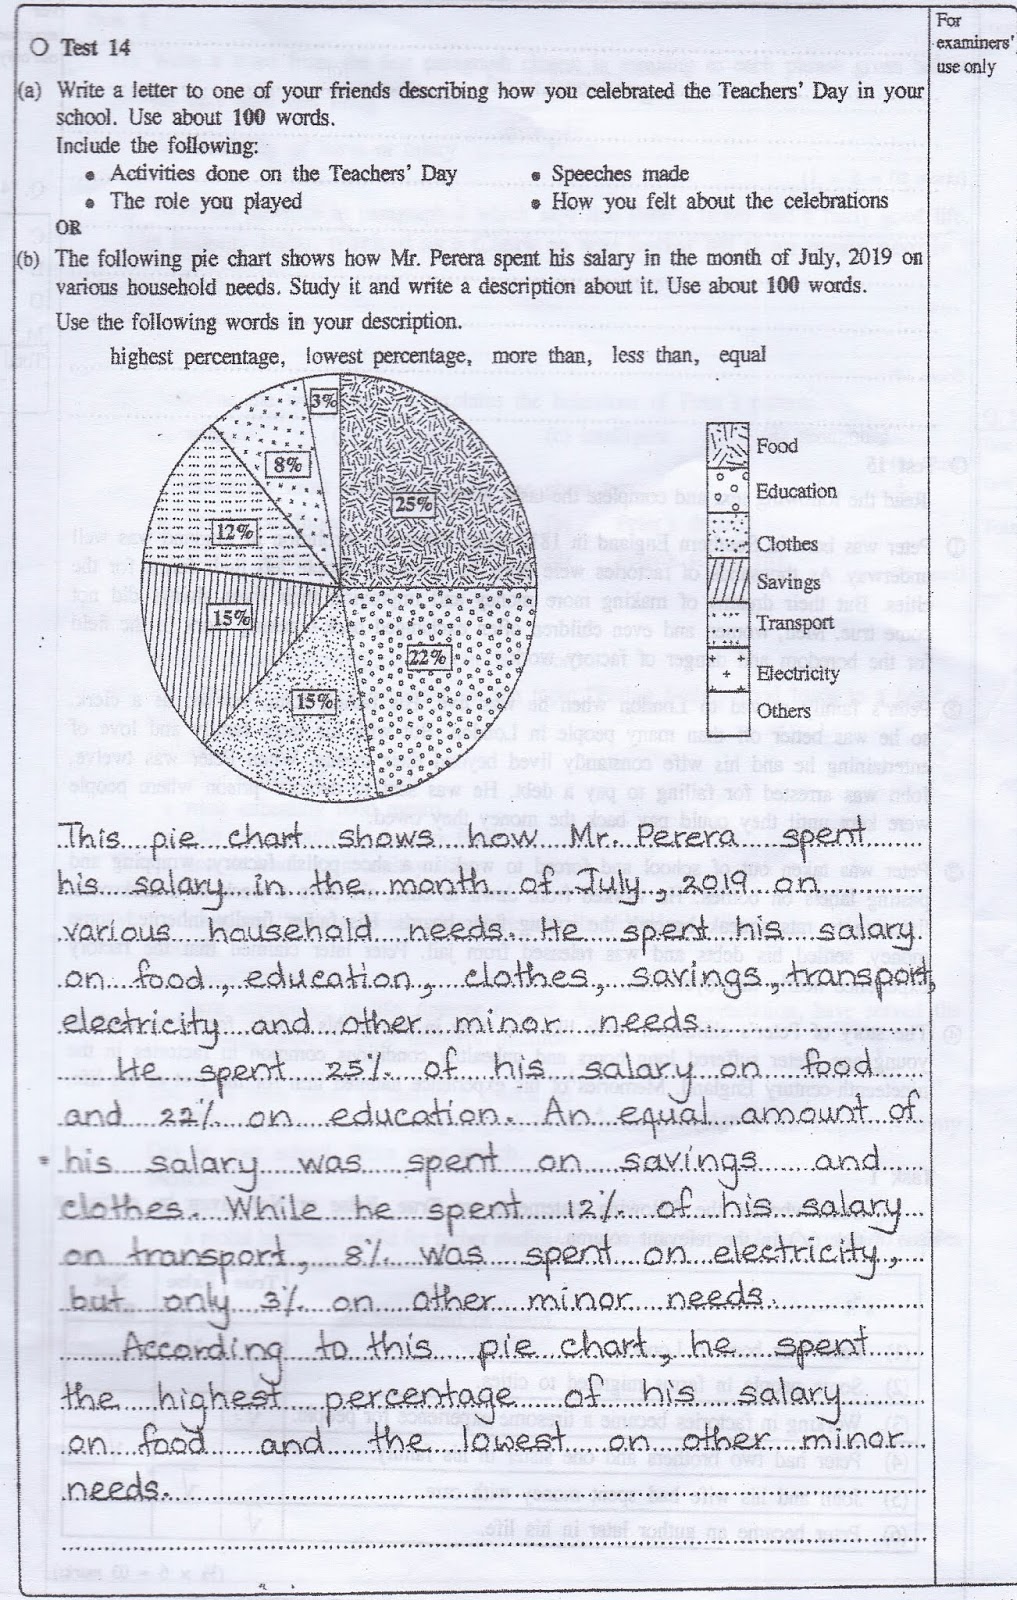 For
examiners'
use only
Test 14
(a) Write a letter to one of your friends describing how you celebrated the Teachers' Day in your
school. Use about 100 words.
Include the following:
• Activities done on the Teachers' Day
• Speeches made
• The role you played
• How you felt about the celebrations
OR
(b) The following pie chart shows how Mr. Perera spent his salary in the month of July, 2019 on
various household needs. Study it and write a description about it. Use about 100 words.
Use the following words in your description.
highest percentage, lowest percentage, more than, less than, equal
3%
8%
25%
12%
15%
22%
15%
Food
Education
Clothes
Savings
Transport
Electricity
Others
This pie chart shows how Mr. Perera spent
his salary in the month of July, 2019 on
various household needs. He spent his salary
on food, education, clothes, savings, transport,
electricity and other minor needs.
He spent 25% of his salary on food
and 22% on education. An equal amount of
his salary was spent on savings and
clothes. While he spent 12% of his salary
on transport, 8% was spent on electricity,
but only 3% on other minor needs.
According to this pie chart, he spent
the highest percentage of his salary
on food and the lowest on other minor
needs.